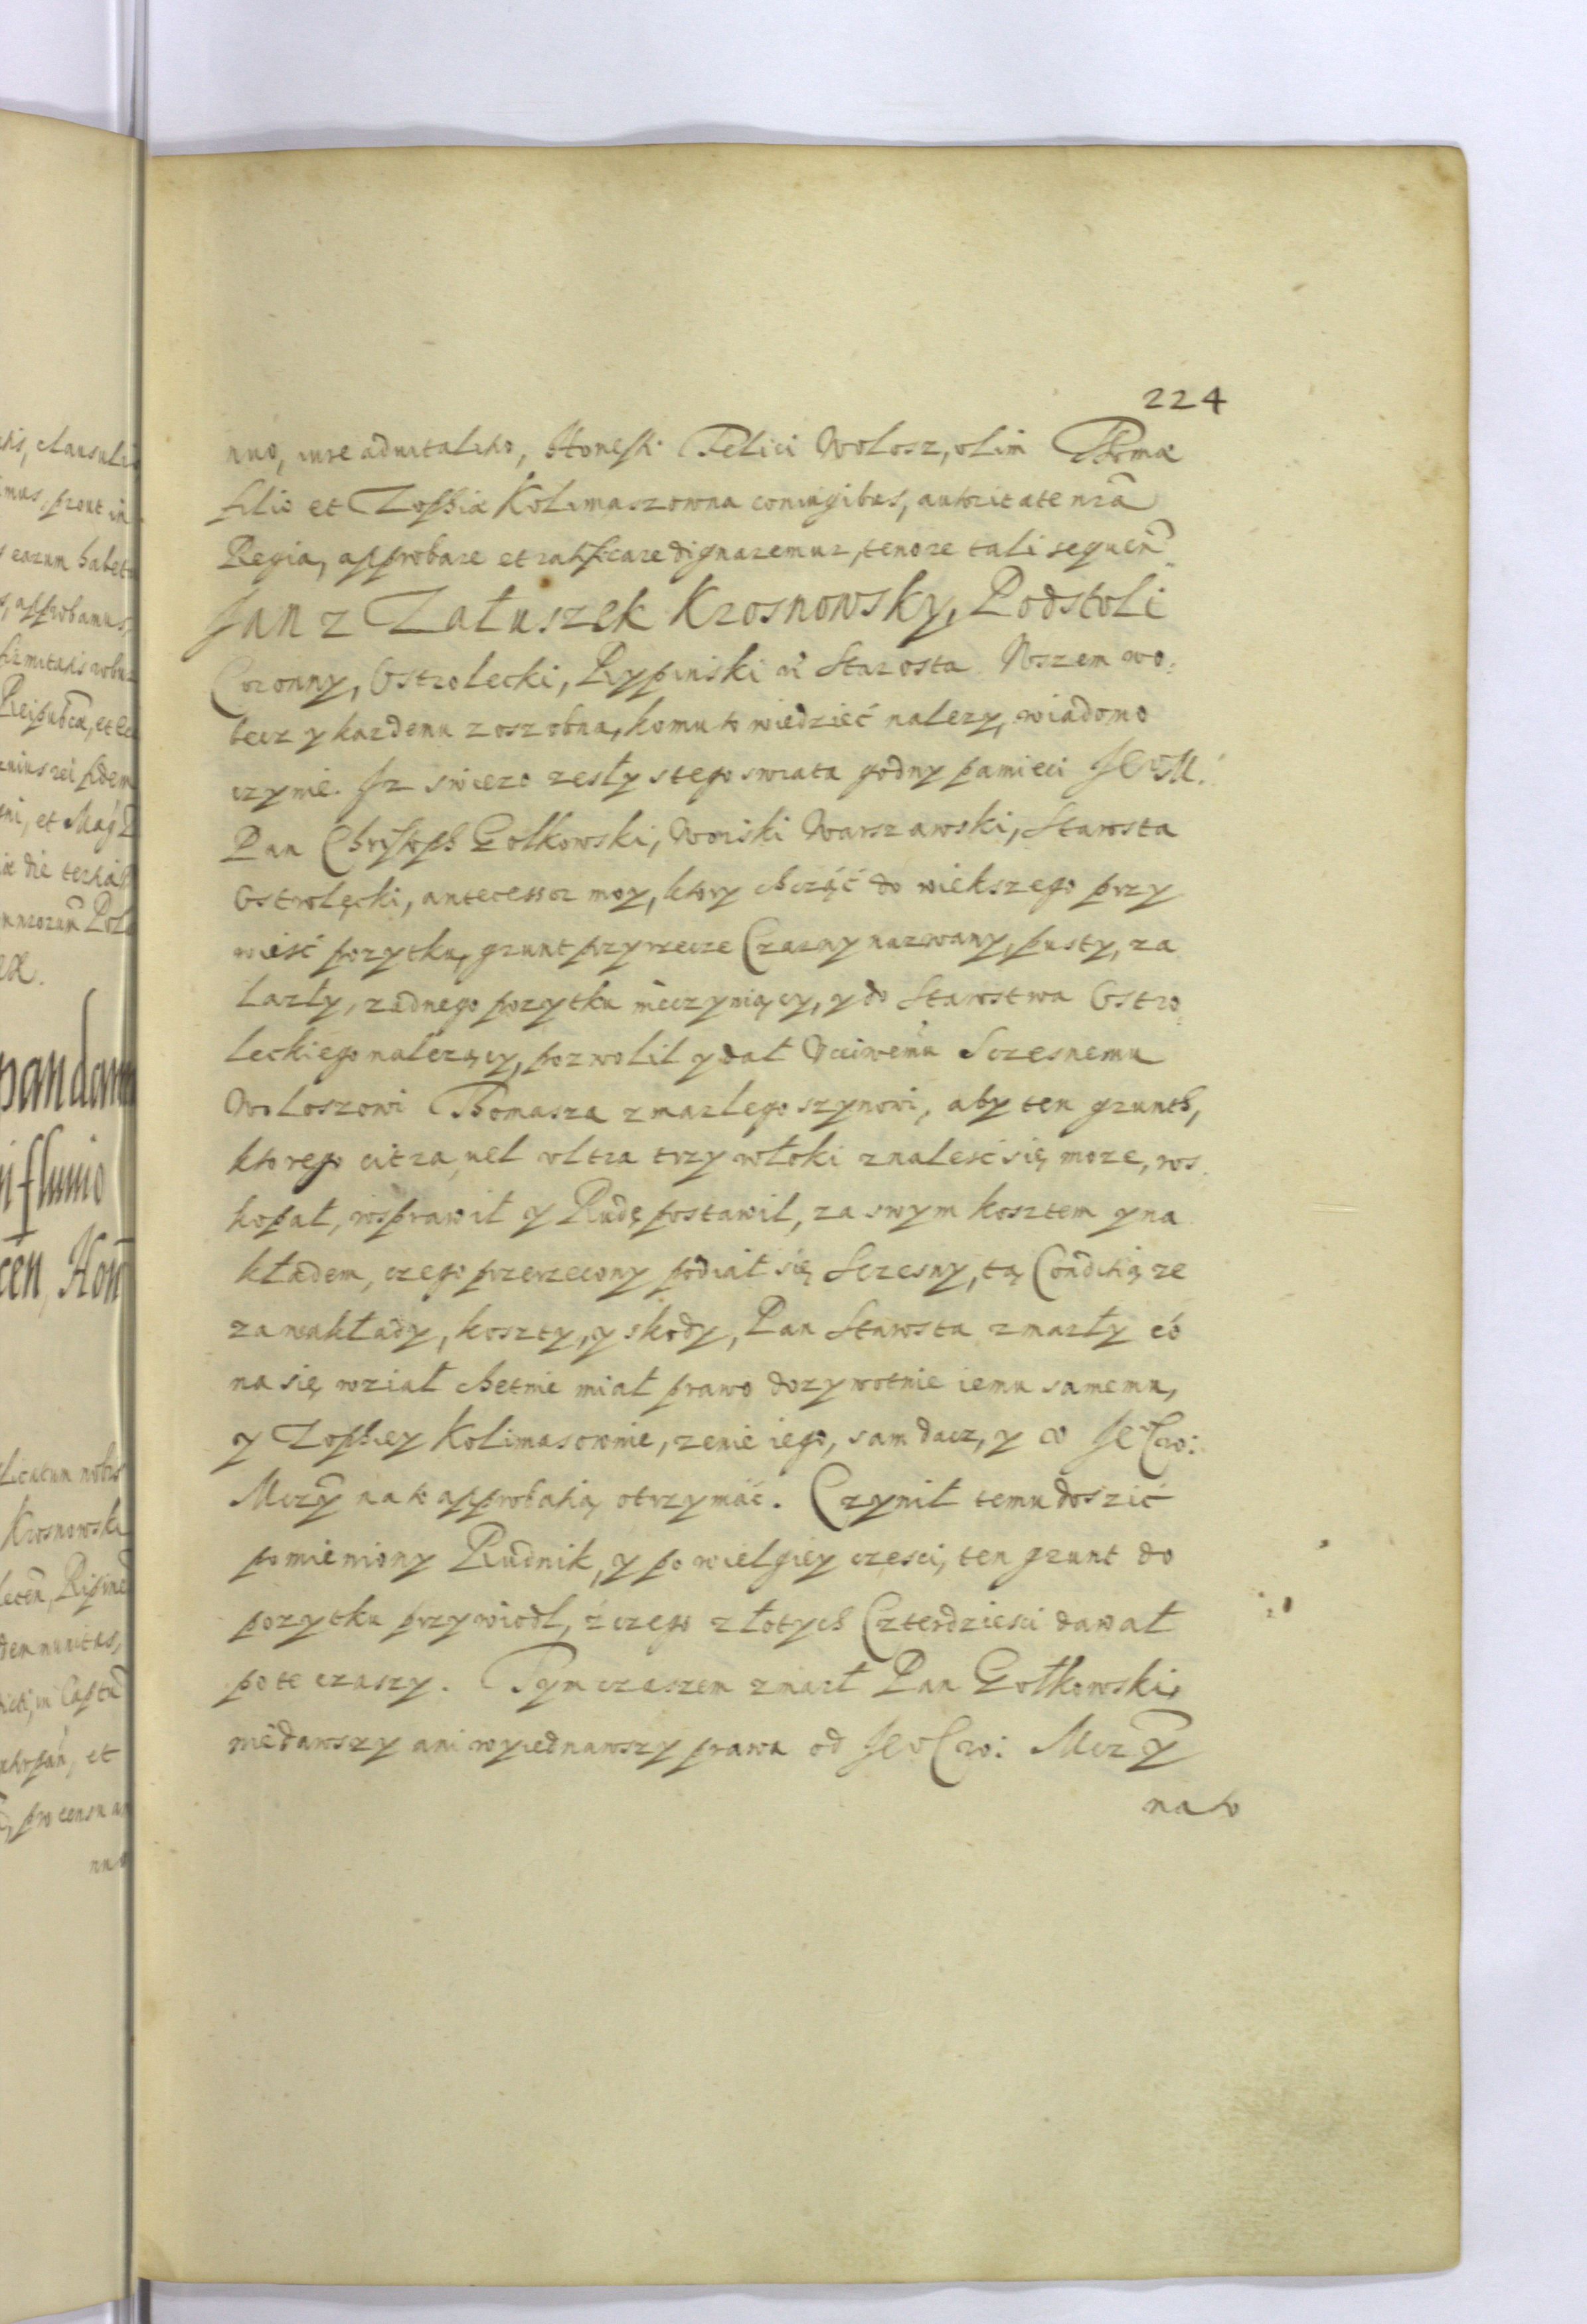 224
nuo, iure aduitalitio, Honesti Felici Wolosz, olim Thomæ
filio et Zophiæ Kolimaszowna coniugibus, autoritate nrã
Regia, approbare et ratificare dignaremur, tenore tali sequen̄.
Jan z Załuszek Krosnowsky, Podstoli
Coronny, Ostrolecki, Rypinski Starosta. Wszem wo-
becz y kazdemu zoszobna, komu to wiedzieć nalezy, wiadomo
czynie. Jz swiezo zesły stego swiata godny pamieci Je° M.
Pan Christoph Gołkowski, Woiski Warszawski, Starosta
Ostrolęcki, antecessor moy, ktory chcząć do wiekszego przy
wieść pozytku, grunt przy rzecze Czarny nazwany, pusty, za
lazły, zadnego pozytku nieczyniący, y do Starostwa Ostro
leckiego nalezący, pozwolił y dał Vcciwemu Sczesnemu
Wołoszowi Thomasza zmarlego szynowi, aby ten grunth,
ktorego citra uel vltra trzy włoki znaleść się moze, ros
kopał, wsprawił y Rudę postawił, za swym kosztem y na
kładem, czego przerzeczony podiał się Sczesny, tą Conditią ze
za nakłady, koszty, y skody, Pan Starosta zmarły có
na się wział chetnie miał prawo dozywotnie iemu samemu,
y Zophiey Kolimasownie, zenie iego, sam dacz, y v Je° Kro:
Mczy na to approbatią otrzymać. Czynił temu doszić
pomieniony Rudnik, y po wielgiey czesci, ten grunt do
pozytku przywiodł, z czego złotych Czterdziesci dawał
po te czaszy. Tym czaszem zmarł Pan Gołkowski,
niedawszy ani wyiednawszy prawa od Je° Kro: Mczy
na to